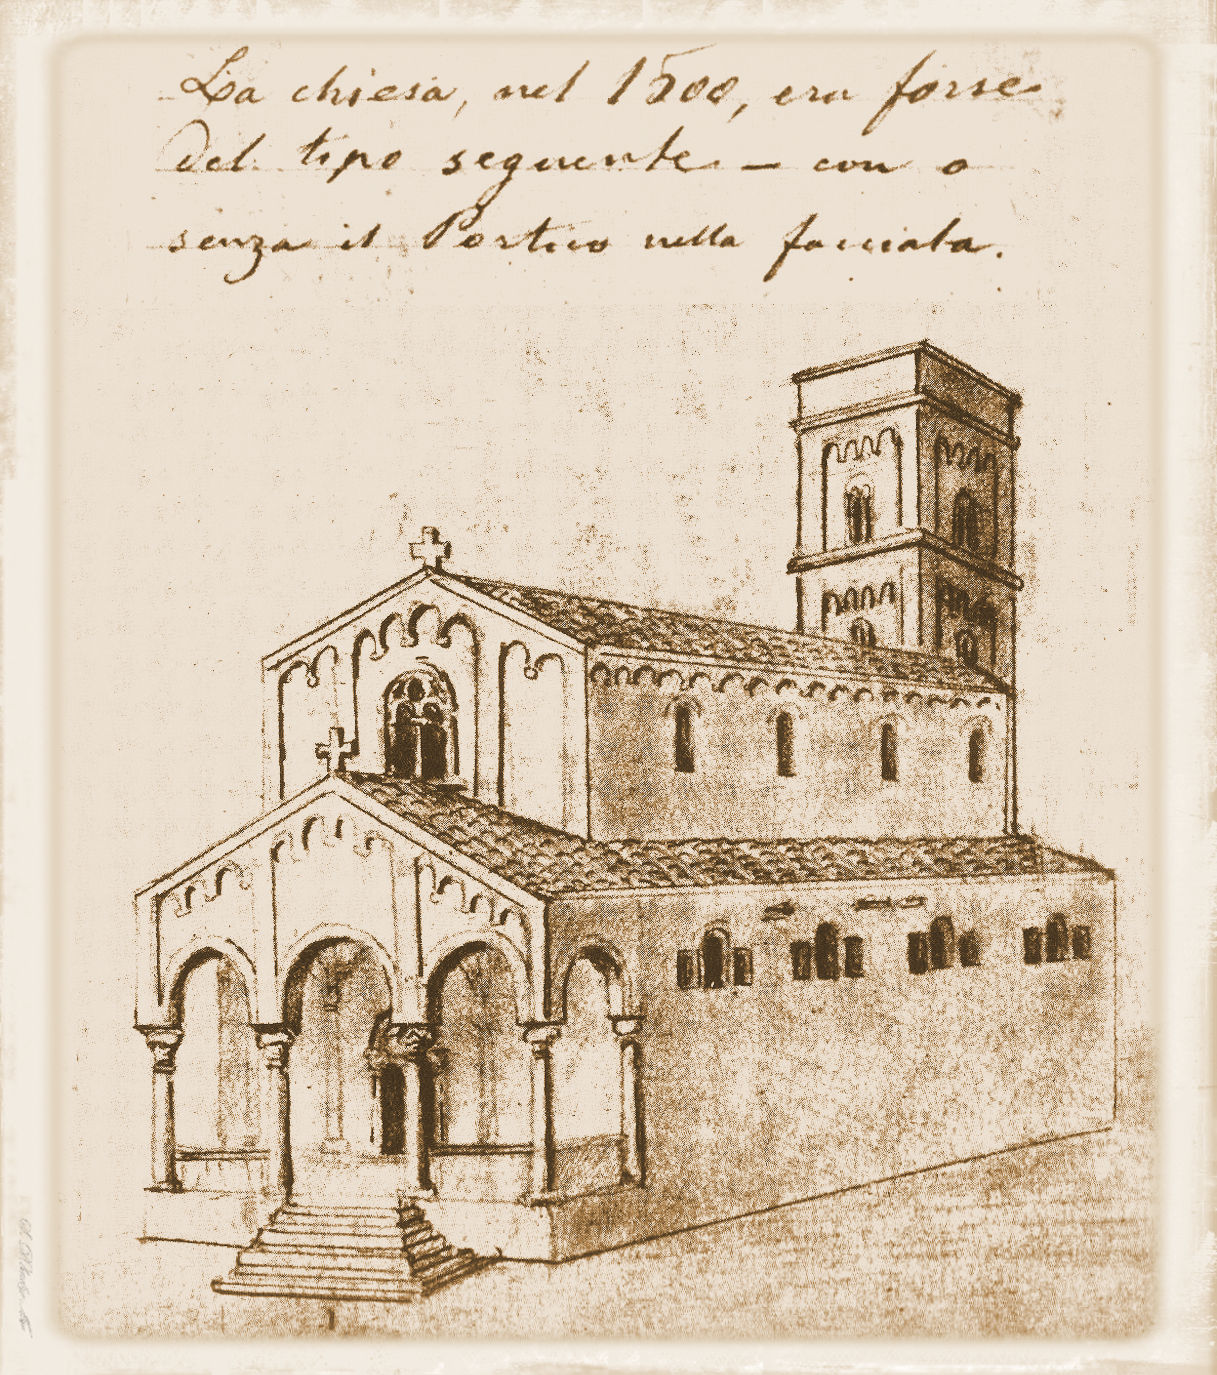 La chiesa, nel 1500, era forse
del tipo seguente – con o
senza il Portico nella facciata.